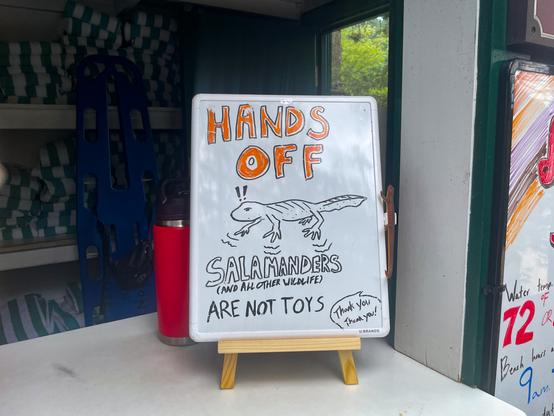 HANDS
OFF
!!
SALAMANDERS
(AND ALL OTHER WILDLIFE)
ARE NOT TOYS
Thank you
Thank you!
U BRANDS
Water temp
72 °F
Beach hours
9am